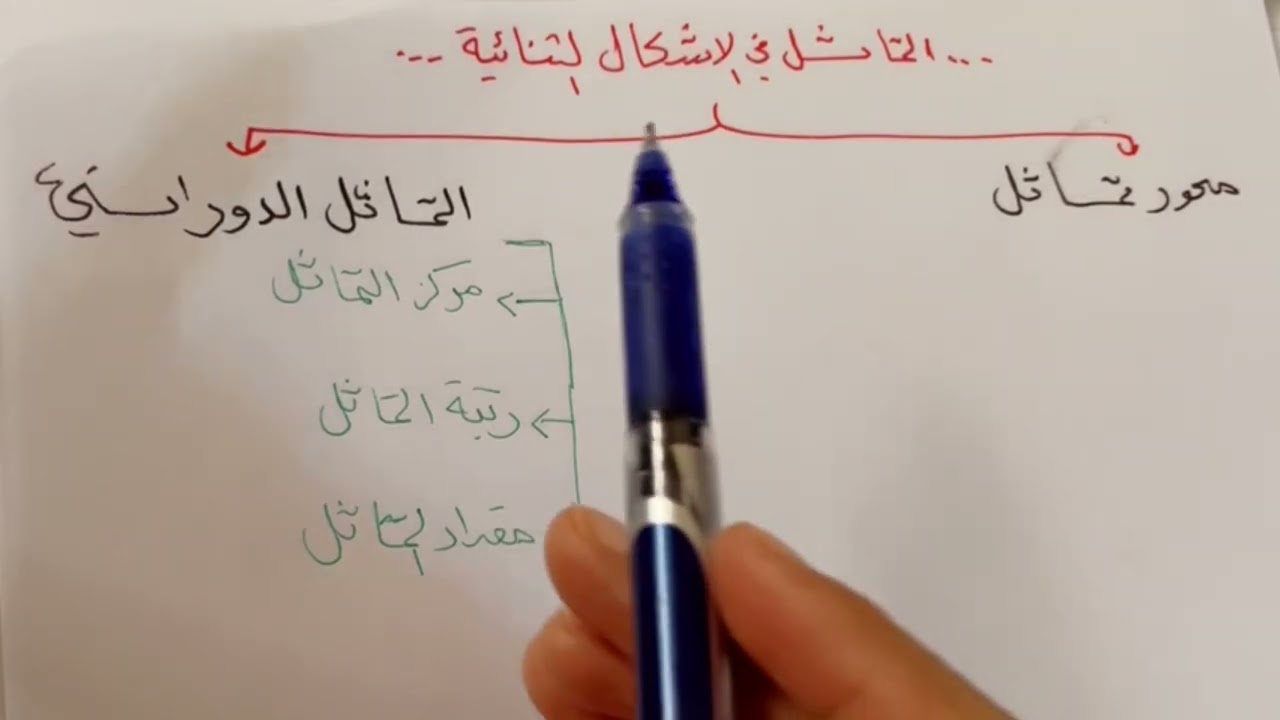 ... التماثل في الاشكال الثنائية ...
محور تماثل
التماثل الدوراني
مركز التماثل
رتبة التماثل
مقدار التماثل